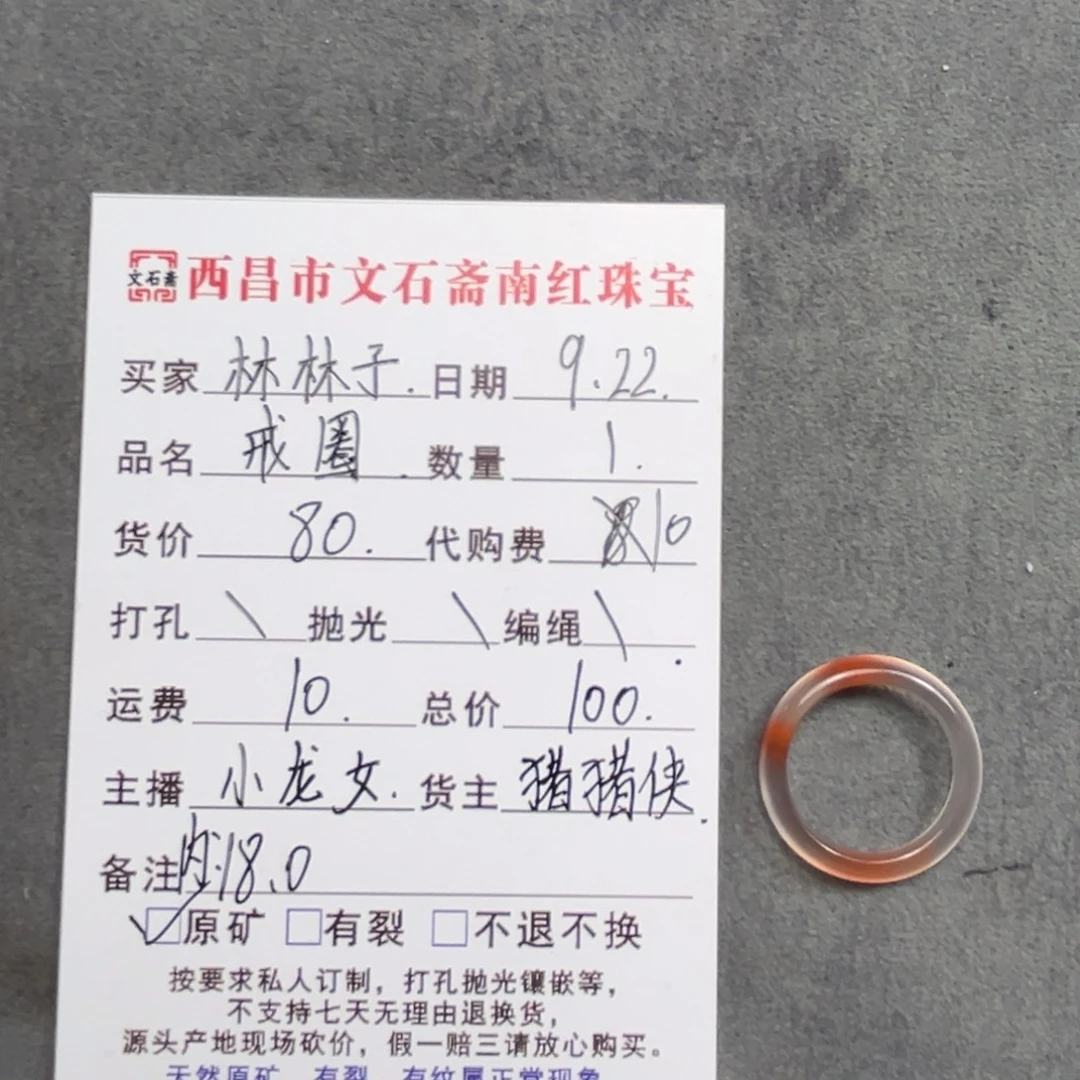 文石斋 西昌市文石斋南红珠宝
买家 林林子. 日期 9.22.
品名 戒圈. 数量 1.
货价 80. 代购费 10
打孔 \ 抛光 \ 编绳 \
运费 10. 总价 100.
主播 小龙女. 货主 猪猪侠.
备注 内:18.0
✓□原矿 □有裂 □不退不换
按要求私人订制，打孔抛光镶嵌等，
不支持七天无理由退换货，
源头产地现场砍价，假一赔三请放心购买。
天然原矿，有裂，有纹属正常现象